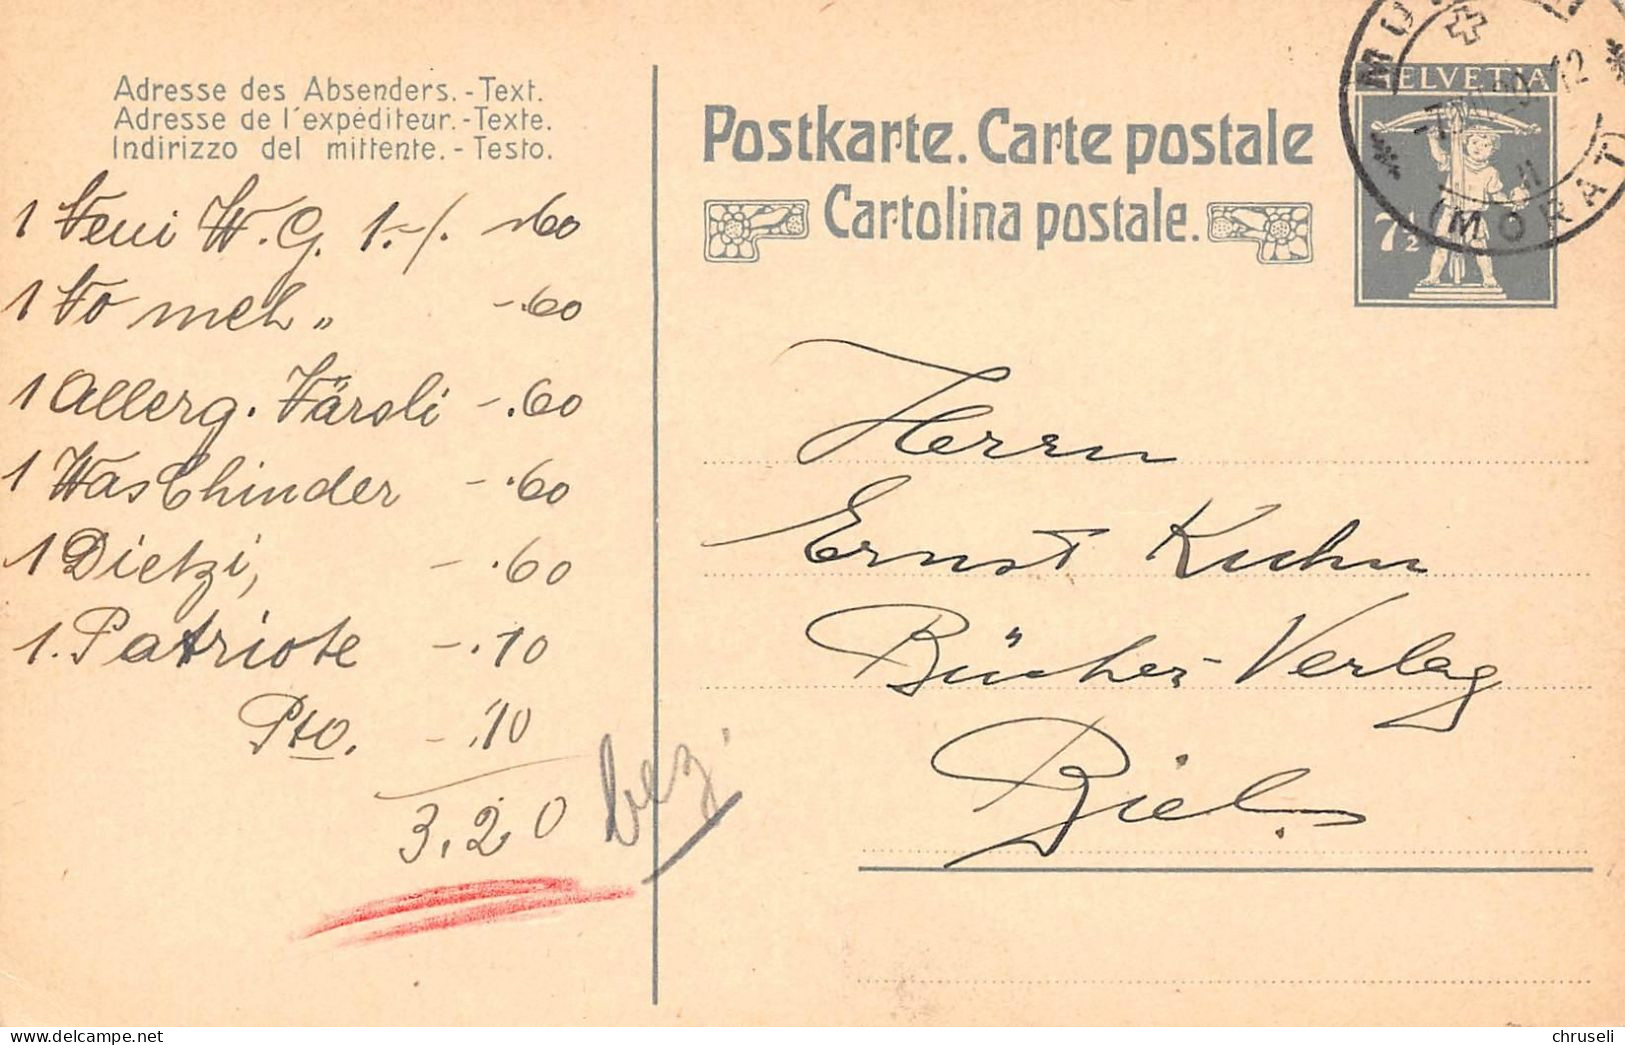 Adresse des Absenders. - Text.
Adresse de l'expéditeur. - Texte.
Indirizzo del mittente. - Testo.
1 Veni W. G. 1.-/. -.60
1 Vo meh „ -.60
1 Allerg. Väroli -.60
1 Was Chinder -.60
1 Dietzi, -.60
1. Patriote -.10
Pto. -.10
3,20
bez.
Postkarte. Carte postale
Cartolina postale.
HELVETIA
7½
(MORAT)
Herrn
Ernst Kuhn
Bücher-Verlag
Biel.
chruseli